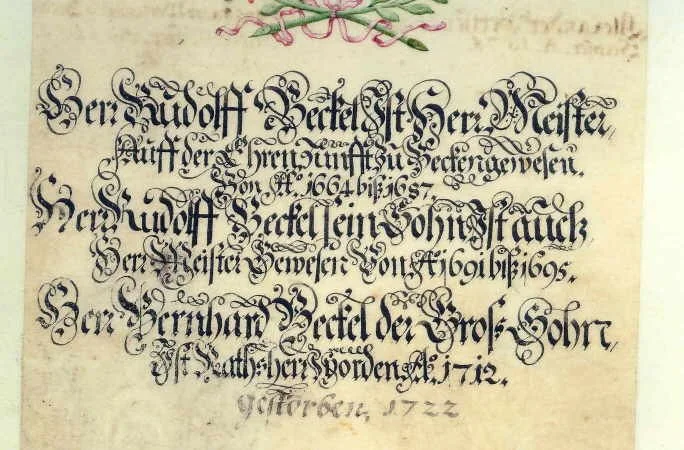 Herr Rudolff Beckel Ist Herr Meister,
Auff der Ehren Zunfft zu Becken gewesen.
Von Aō. 1664 biß 1687.
Herr Rudolff Beckel sein Sohn Ist auch
Herr Meister Gewesen Von Aō 1691 biß 1695.
Herr Bernhard Beckel der Groß Sohn,
Ist Rathsherr Worden Aō. 1712.
gestorben, 1722